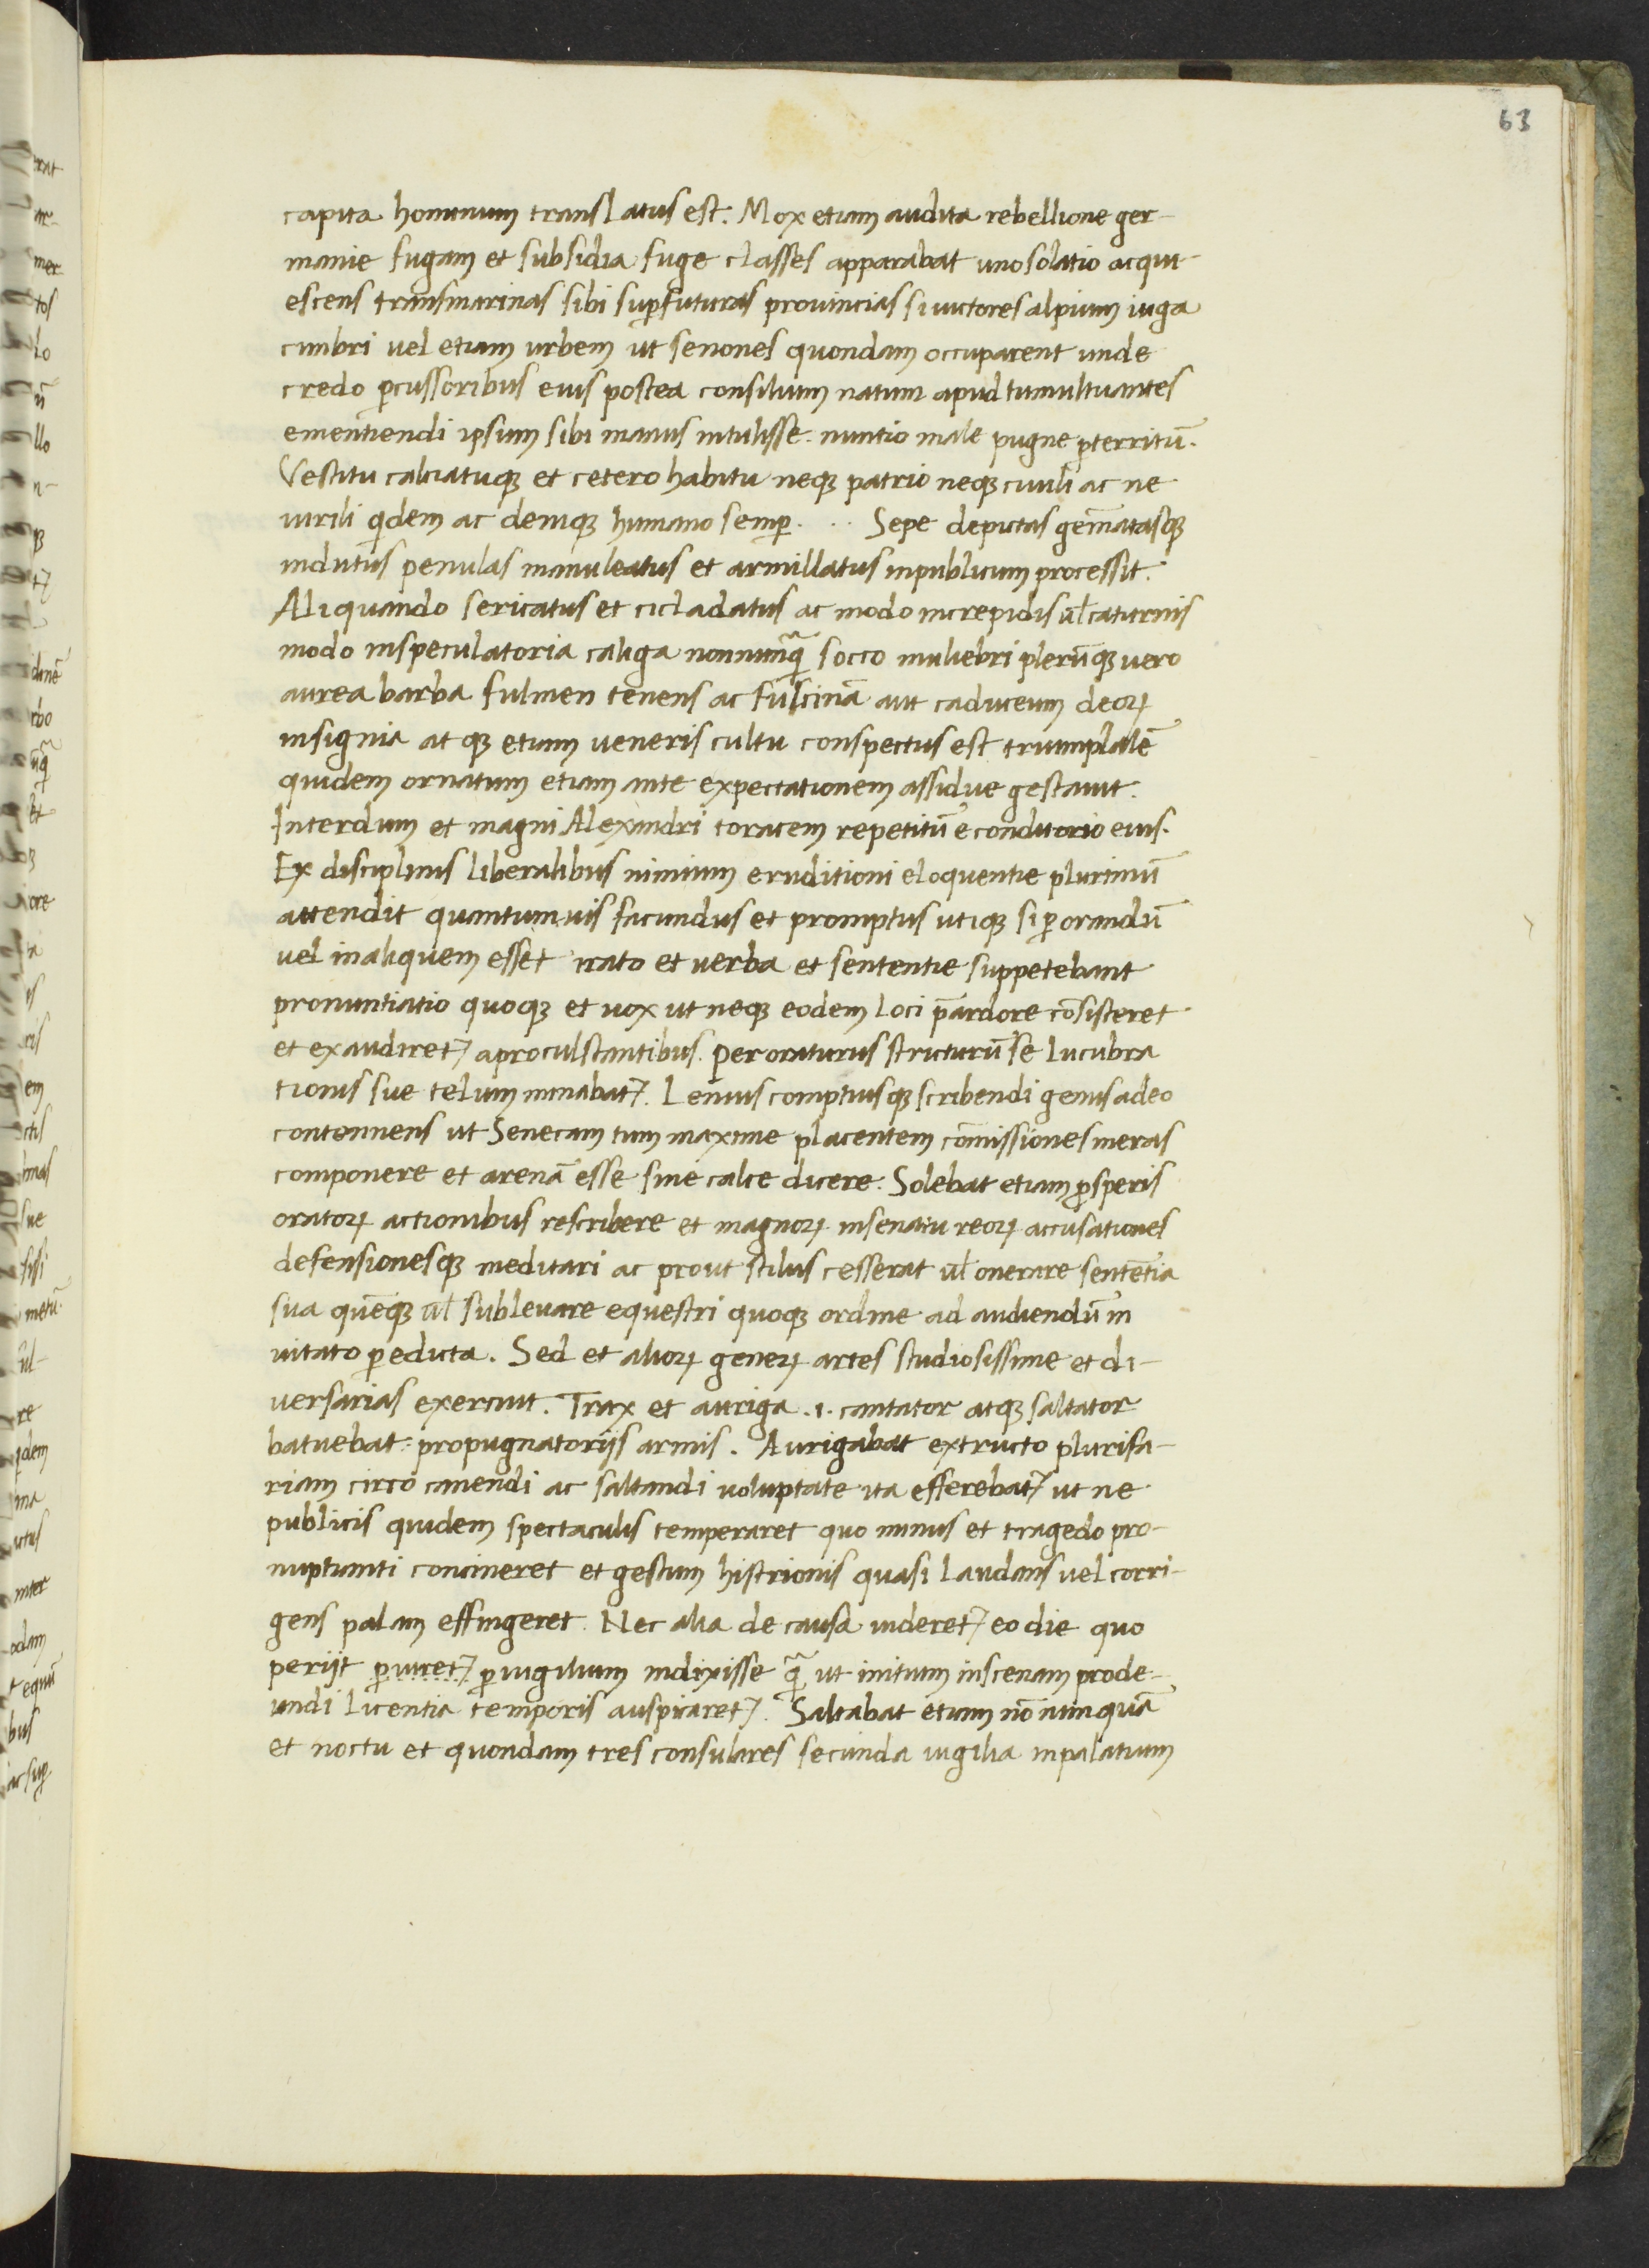 63
capita hominum translatus est. Mox etiam audita rebellione ger-
manie fugam et subsidia fuge classes apparabat uno solatio acqui-
escens transmarinas sibi sup̱futuras prouincias si uictores alpium iuga
cimbri uel etiam urbem ut senones quondam occuparent unde
credo ꝑcussoribus eius postea consilium natum apud tumultuantes
ementiendi ipsum sibi manus intulisse. nuntio male pugne ꝑterritū.
Vestitu calciatuqꝫ et cetero habitu neqꝫ patrio neqꝫ ciuili ac ne
uirili qͥdem ac deniqꝫ humano semꝑ. .. Sepe depictas gem̄atasqꝫ
indutus penulas manuleatus et armillatus in publicum processit.
Aliquando sericatus et cicladatus ac modo in crepidis uł caturnis
modo in speculatoria caliga nonnunqͣ socco muliebri plerūqꝫ uero
aurea barba fulmen tenens ac fuscinā aut caduceum deoꝝ
insignia atqꝫ etiam ueneris cultu conspectus est triumphalē
quidem ornatum etiam ante expectationem assidue gestauit.
Interdum et magni Alexandri toracem repetitū e conditorio eius.
Ex disciplinis liberalibus nimium eruditioni eloquentie plurimū
attendit quantumuis facundus et promptus utiqꝫ si ꝑorandū
uel in aliquem esset irato et uerba et sententie suppetebant
pronuntiatio quoqꝫ et uox ut neqꝫ eodem loci p̄ ardore cōsisteret
et exaudiret᷑ a procul stantibus. Peroraturus stricturū se lucubra
tionis sue telum minabat᷑. Lenius comptiusqꝫ scribendi genus adeo
contemnens ut Senecam tum maxime placentem cōmissiones meras
componere et arenā esse sine calce dicere. Solebat etiam ꝓsperis
oratoꝝ actionibus rescribere et magnoꝝ in senatu reoꝝ accusationes
defensionesqꝫ meditari ac prout stilus cesserat uł onerare sentētia
sua quēqꝫ uł subleuare equestri quoqꝫ ordine ad audiendū in
uitato ꝑ edicta. Sed et alioꝝ geneꝝ artes studiosissime et di-
uersarias exercuit. Trax et auriga .i. cantator atqꝫ saltator
batuebat: propugnatorijs armis. Aurigabat extructo plurifa-
riam circo canendi ac saltandi uoluptate ita efferebat᷑ ut ne
publicis quidem spectaculis temperaret quo minus et tragedo pro-
nuptianti concineret et gestum histrionis quasi laudans uel corri-
gens palam effingeret. Nec alia de causa uideret᷑ eo die quo
perijt ꝑiuret᷑ ꝑuigilium indixisse qͣ ut initium in scenam prode-
undi licentia temporis auspicaret᷑. Saltabat etiam nō nunquā
et noctu et quondam tres consulares secunda uigilia in palatium